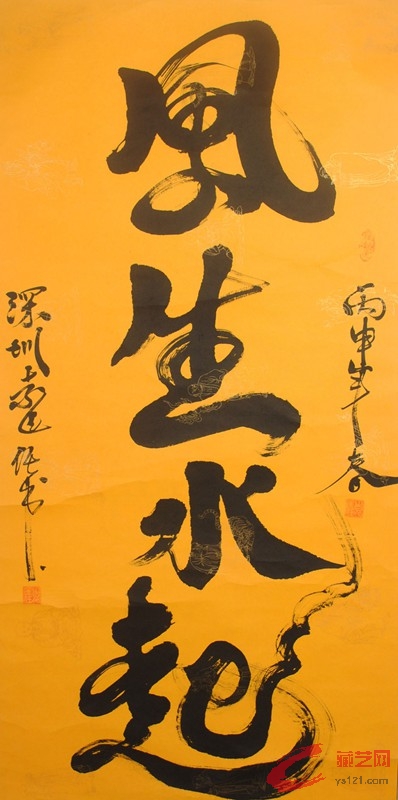 丙申年春
風生水起
深圳
藏艺网
ys121.com